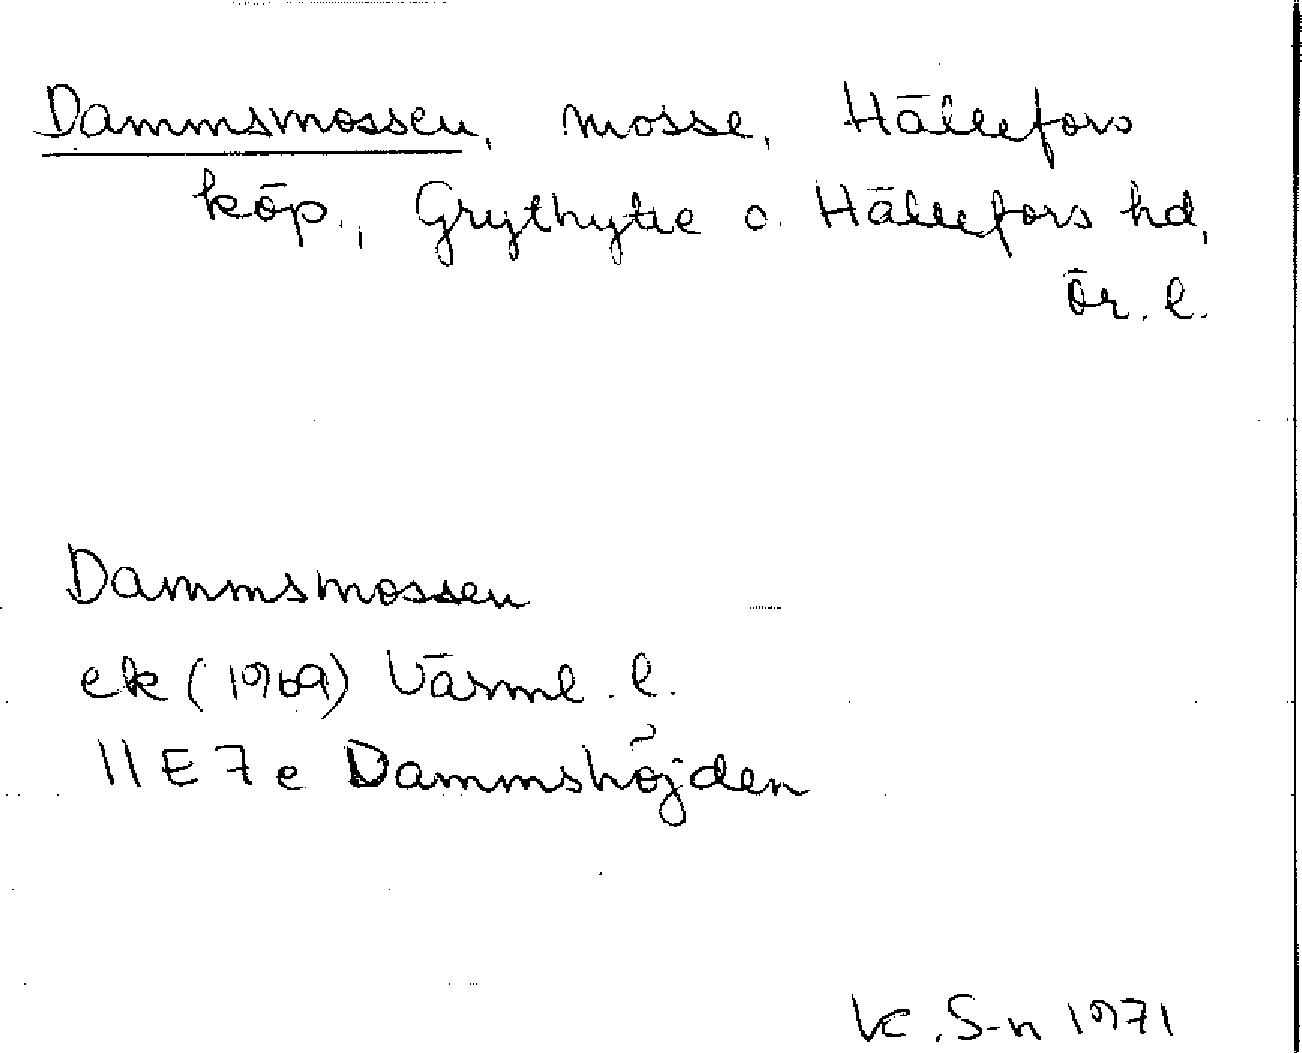 Dammsmossen, mosse, Hällefors
köp., Grythytte o. Hällefors hd,
Ör. l.
Dammsmossen
ek (1969) Värml. l.
11E 7e Dammshöjden
VC. S-n 1971